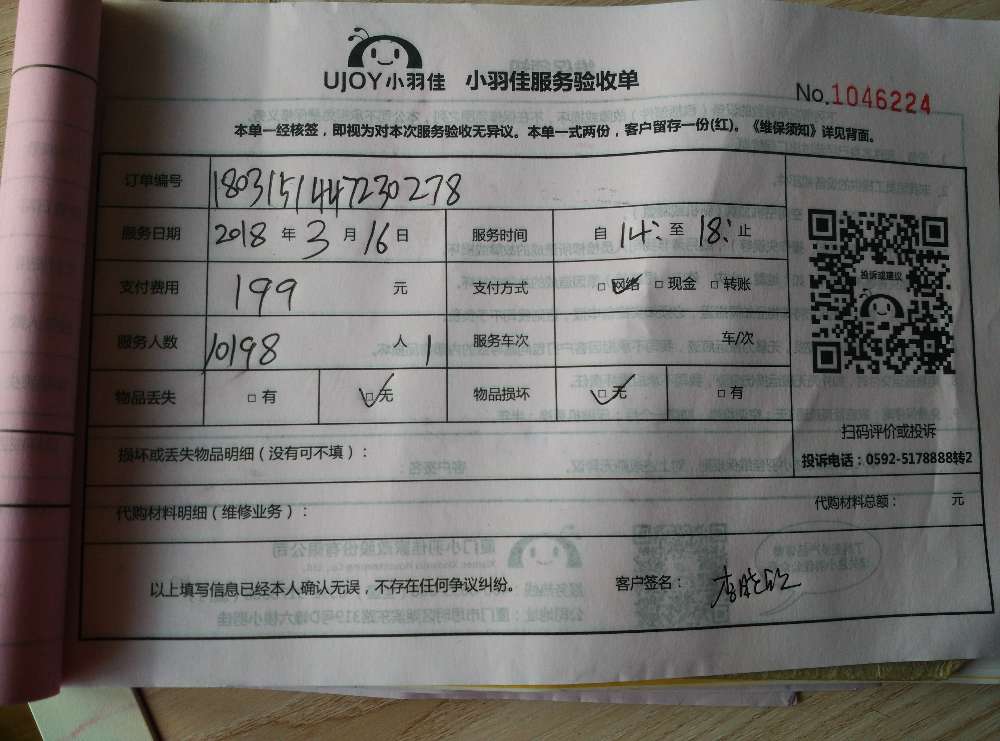 UJOY小羽佳 小羽佳服务验收单
No.1046224
本单一经核签，即视为对本次服务验收无异议。本单一式两份，客户留存一份(红)。《维保须知》详见背面。
订单编号 1803151447230278
服务日期 2018 年 3 月 16 日 服务时间 自 14: 至 18: 止
支付费用 199 元 支付方式 □ 网络 □ 现金 □ 转账
服务人数 10198 人 1 服务车次 车/次
物品丢失 □ 有 □ 无 物品损坏 □ 无 □ 有
投诉或建议
扫码评价或投诉
投诉电话：0592-5178888转2
损坏或丢失物品明细（没有可不填）：
代购材料明细（维修业务）： 代购材料总额： 元
以上填写信息已经本人确认无误，不存在任何争议纠纷。 客户签名：